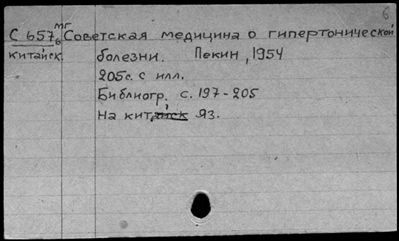 6
мг
С 657 6 Советская медицина о гипертонической
китайск. болезни. Пекин, 1954
205 с. с илл.
Библиогр. с. 197-205
На кит. яз.